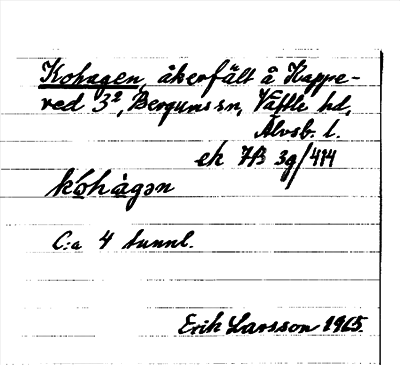 Kohagen, åkerfält å Kappe-
red 3², Bergums sn, Vättle hd,
Älvsb. l.
ek HB 3g/414
kohàgən
C:a 4 tunnl.
Erik Larsson 1965